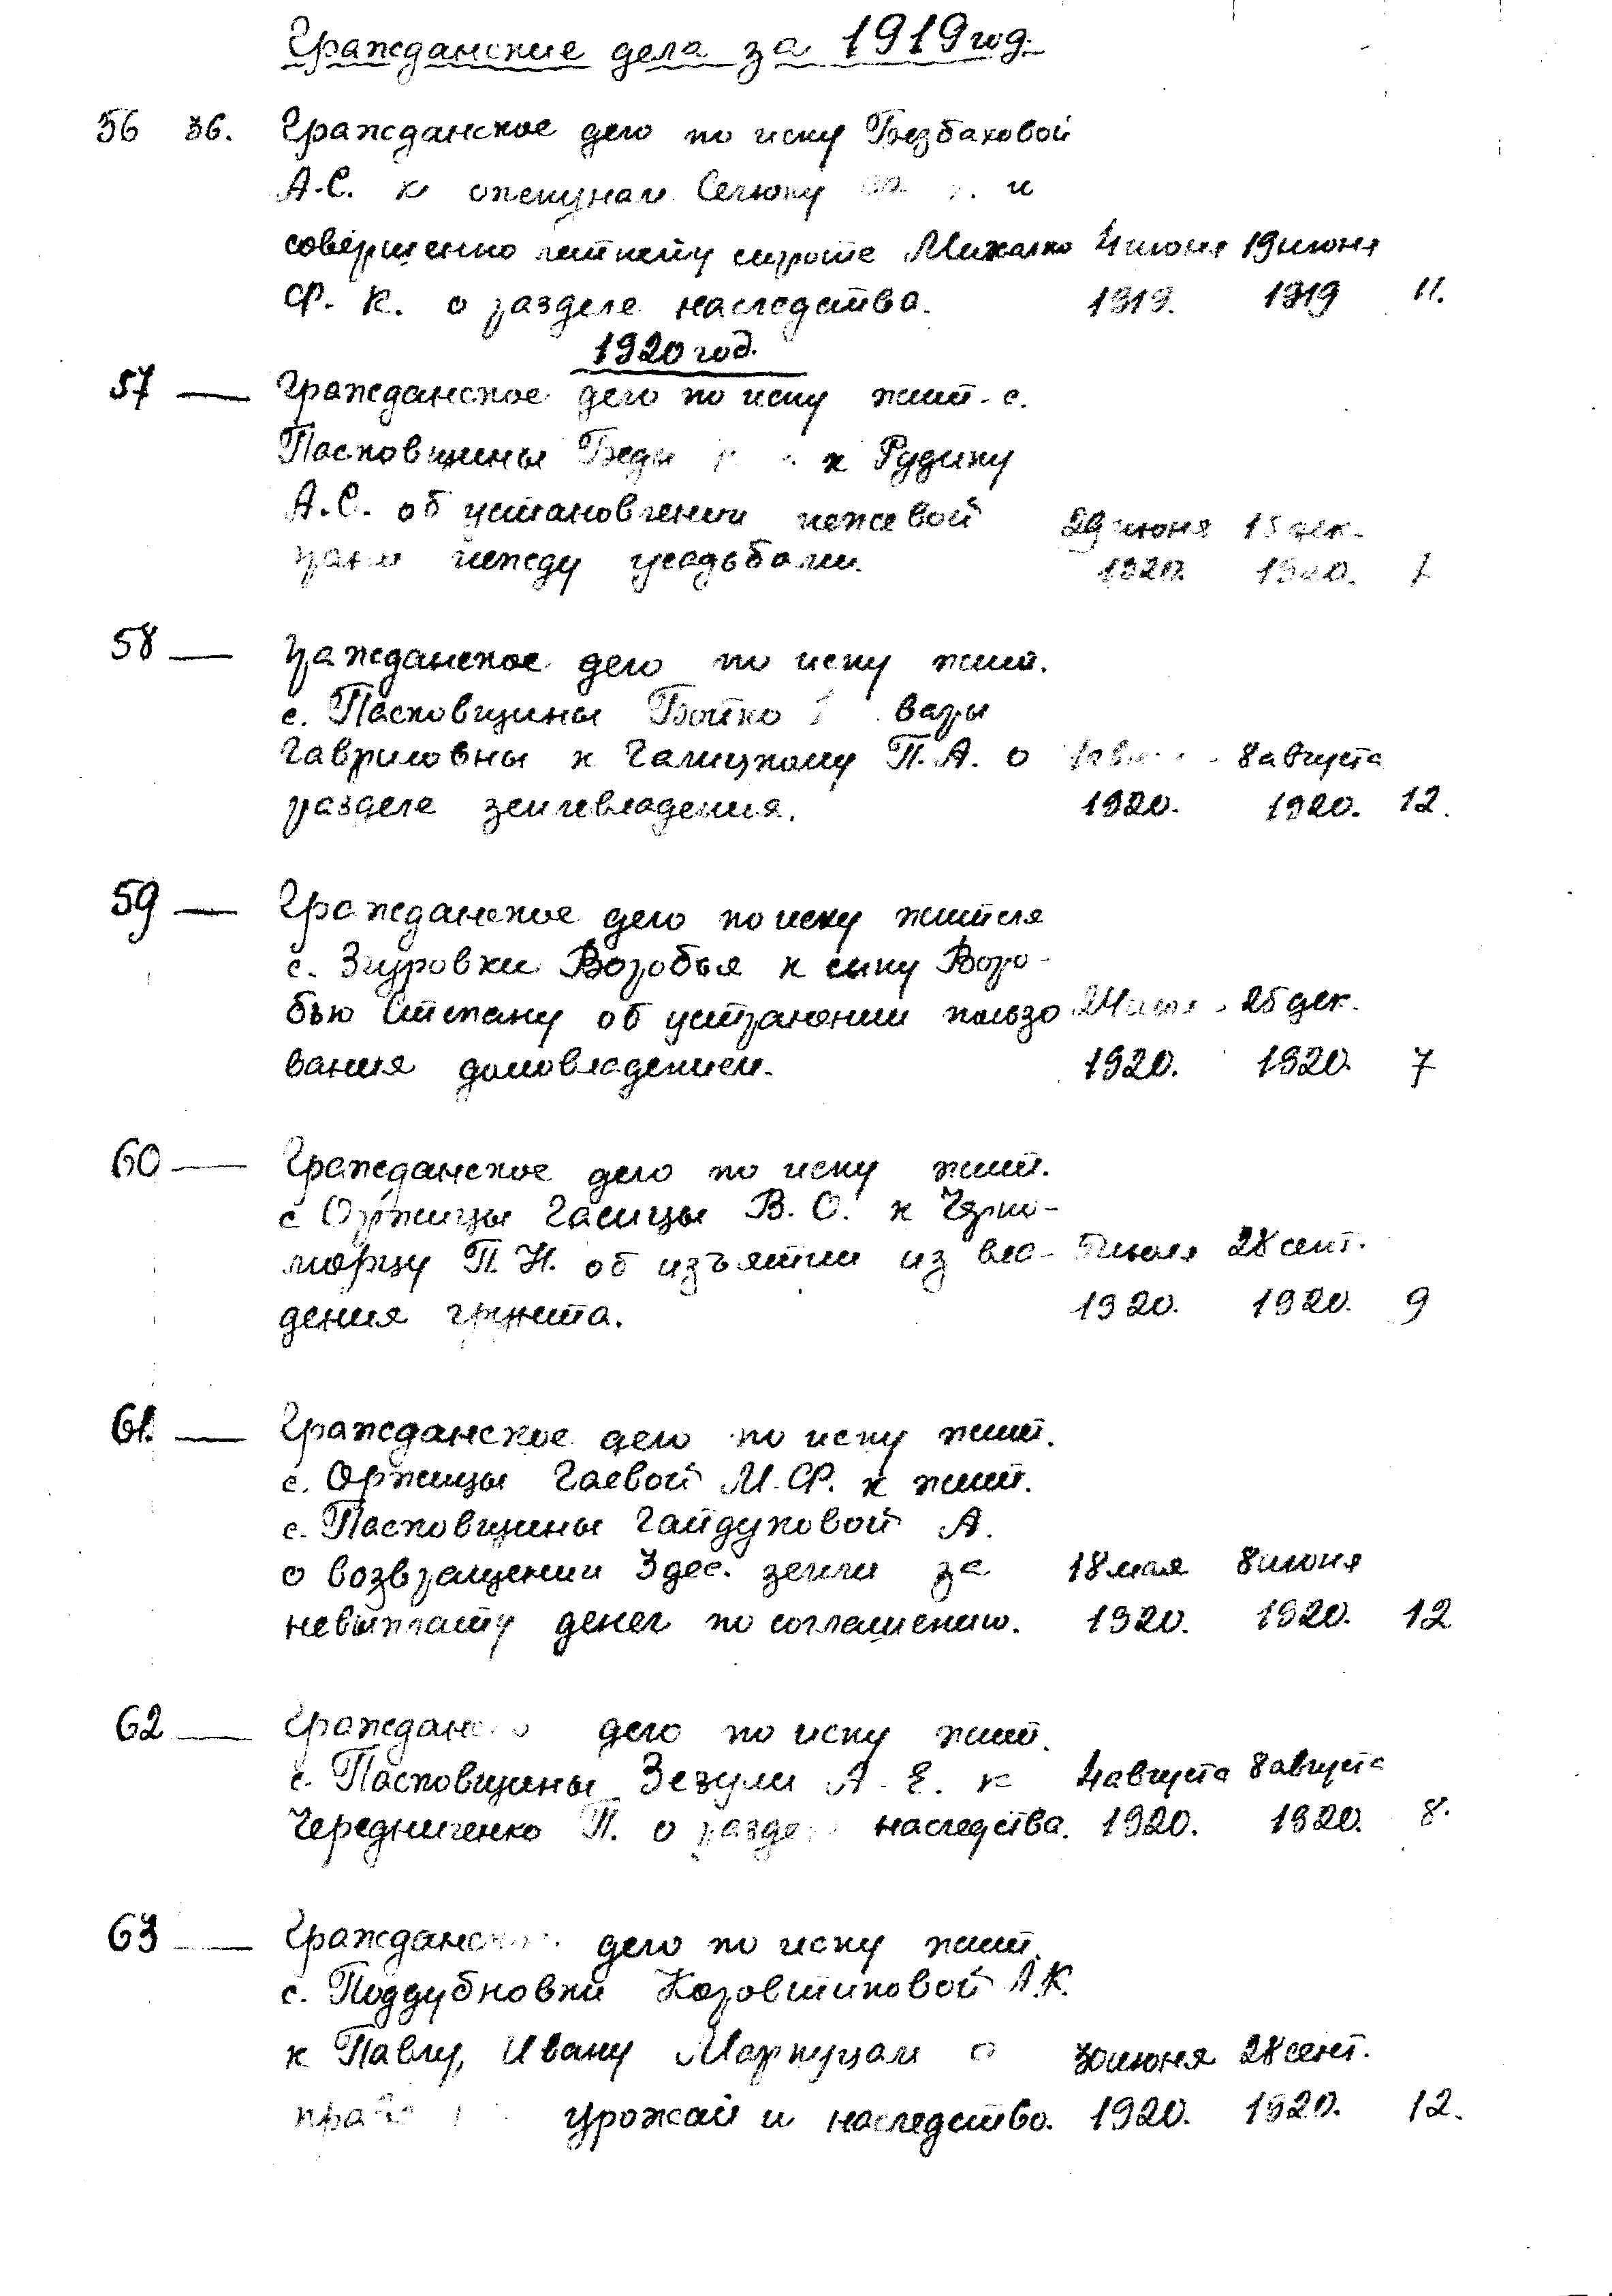 Гражданские дела за 1919 год.
56 36. Гражданское дело по иску Безбаховой
А.С. к опекунам Сегюку и
совершенно летнему сироте Михалко 4 июня 19 июня
Ф. К. о разделе наследства. 1919. 1919 11.
1920 год.
57 — Гражданское дело по иску жит. с.
Пасковщины к Рудику
А.С. об установлении межевой 29 июня 15 дек.
грани между усадьбами. 1920. 1920. 7
58 — Гражданское дело по иску жит.
с. Пасковщины Бойко
Гавриловны к Галицкому П.А. о 8 августа
разделе землевладения. 1920. 1920. 12.
59 — Гражданское дело по иску жителя
с. Згуровки Воробья к сыну Воро-
бью Степану об устранении пользо 24 25 дек.
вания домовладением. 1920. 1920. 7
60 — Гражданское дело по иску жит.
с Оржицы Гасицы В. О. к Черно-
морцу П.Н. об изъятии из вла- 5 июля 28 сент.
дения грунта. 1920. 1920. 9
61. — Гражданское дело по иску жит.
с. Оржицы Гаевой М.Ф. к жит.
с. Пасковщины Гайдуковой А.
о возвращении 3 дес. земли за 18 мая 8 июня
невыплату денег по соглашению. 1920. 1920. 12
62 — дело по иску жит.
с. Пасковщины Зезули А. Е. к 4 августа 8 августа
Чередниченко П. о разделе наследства. 1920. 1920. 8.
63 — Гражданское дело по иску жит.
с. Поддубновки Коровтиковой А.К.
к Павлу, Ивану Маркуцам о 30 июня 28 сент.
урожай и наследство. 1920. 1920. 12.